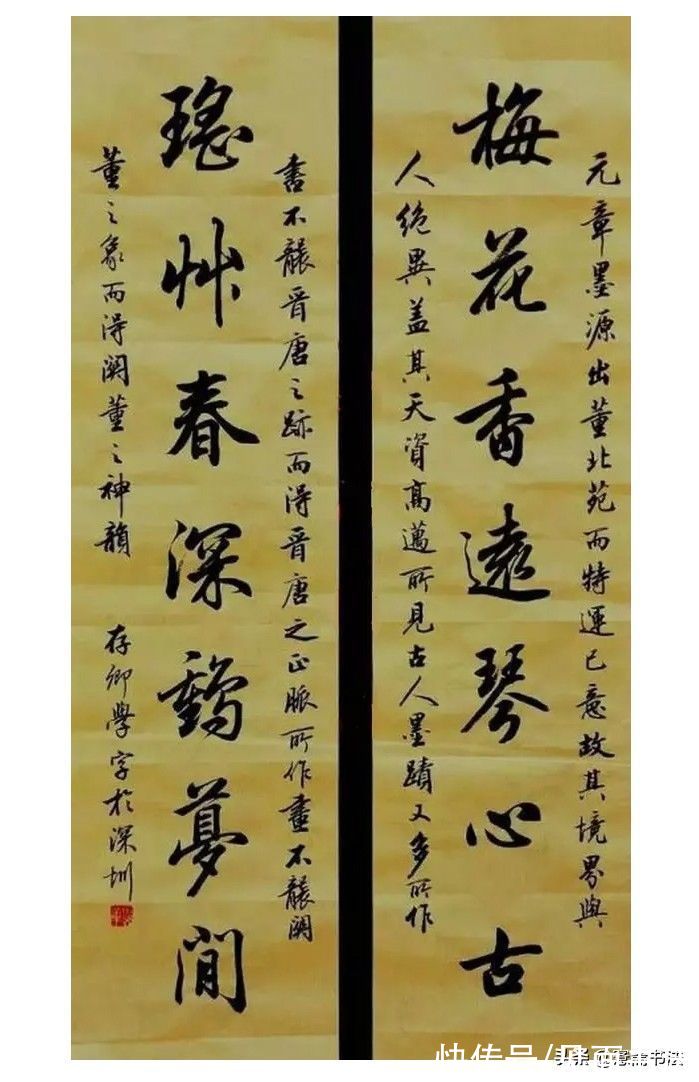 元章墨源出董北苑而特運己意故其境界與
梅花香遠琴心古
人絕異盖其天資高邁所見古人墨蹟又多所作
書不襲晉唐之跡而得晉唐之正脈所作畫不襲關
瑤艸春深鶴夢閒
董之象而得關董之神韻 存卿學字於深圳
快传号/
头条 书法